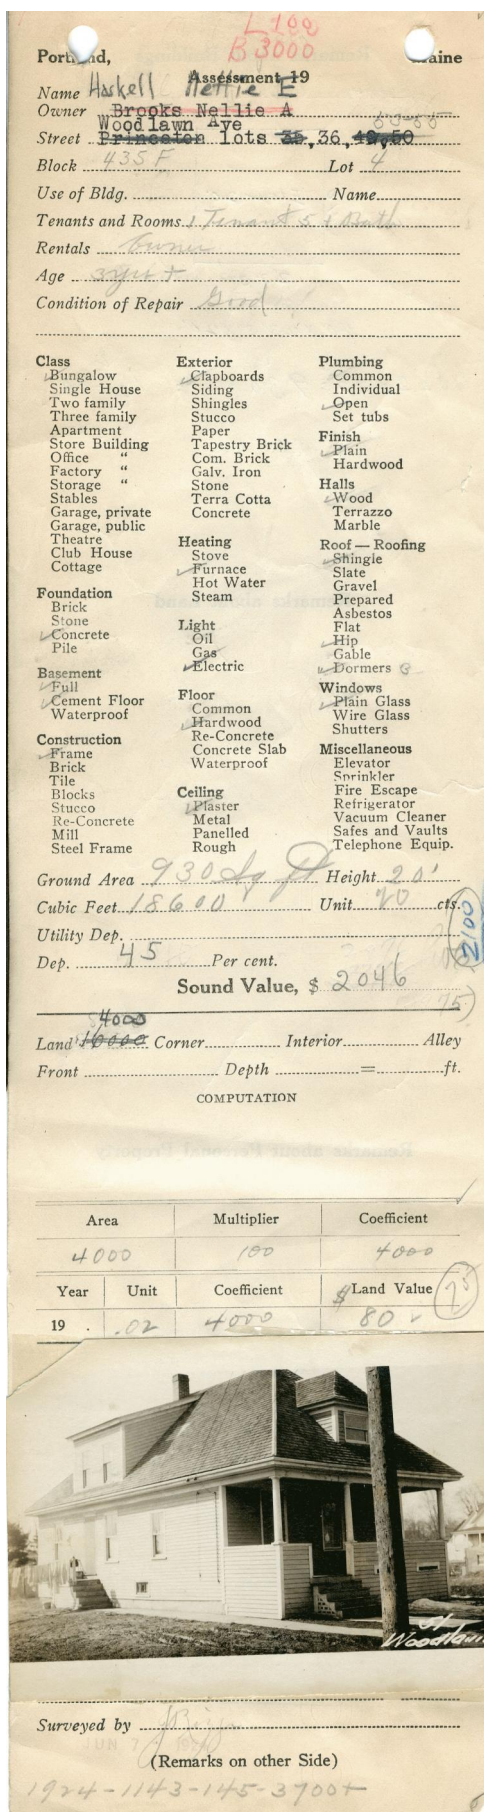 L 100
B 3000
Portland, Maine
Assessment 19
Name Haskell Nettie E
Owner Brooks Nellie A
Woodlawn Ave
Street Princeton lots 35,36,49,50
Block 435 F Lot 4
Use of Bldg. Name
Tenants and Rooms 1 Tenant 5 & Bath
Rentals Owner
Age
Condition of Repair Good
Class
Bungalow
Single House
Two family
Three family
Apartment
Store Building
Office "
Factory "
Storage "
Stables
Garage, private
Garage, public
Theatre
Club House
Cottage
Foundation
Brick
Stone
Concrete
Pile
Basement
Full
Cement Floor
Waterproof
Construction
Frame
Brick
Tile
Blocks
Stucco
Re-Concrete
Mill
Steel Frame
Exterior
Clapboards
Siding
Shingles
Stucco
Paper
Tapestry Brick
Com. Brick
Galv. Iron
Stone
Terra Cotta
Concrete
Heating
Stove
Furnace
Hot Water
Steam
Light
Oil
Gas
Electric
Floor
Common
Hardwood
Re-Concrete
Concrete Slab
Waterproof
Ceiling
Plaster
Metal
Panelled
Rough
Plumbing
Common
Individual
Open
Set tubs
Finish
Plain
Hardwood
Halls
Wood
Terrazzo
Marble
Roof — Roofing
Shingle
Slate
Gravel
Prepared
Asbestos
Flat
Hip
Gable
Dormers 3
Windows
Plain Glass
Wire Glass
Shutters
Miscellaneous
Elevator
Sprinkler
Fire Escape
Refrigerator
Vacuum Cleaner
Safes and Vaults
Telephone Equip.
Ground Area 930 Sq ft Height 20'
Cubic Feet 18600 Unit 20 cts.
2100
Utility Dep.
Dep. 45 Per cent.
Sound Value, $ 2046
75
4000
Land 10000 Corner Interior Alley
Front Depth = ft.
COMPUTATION
Area Multiplier Coefficient
4000 100 4000
Year Unit Coefficient $ Land Value
75
19 . .02 4000 80
51
Woodlawn
Surveyed by
JUN 7
(Remarks on other Side)
1924-1143-145-3700+